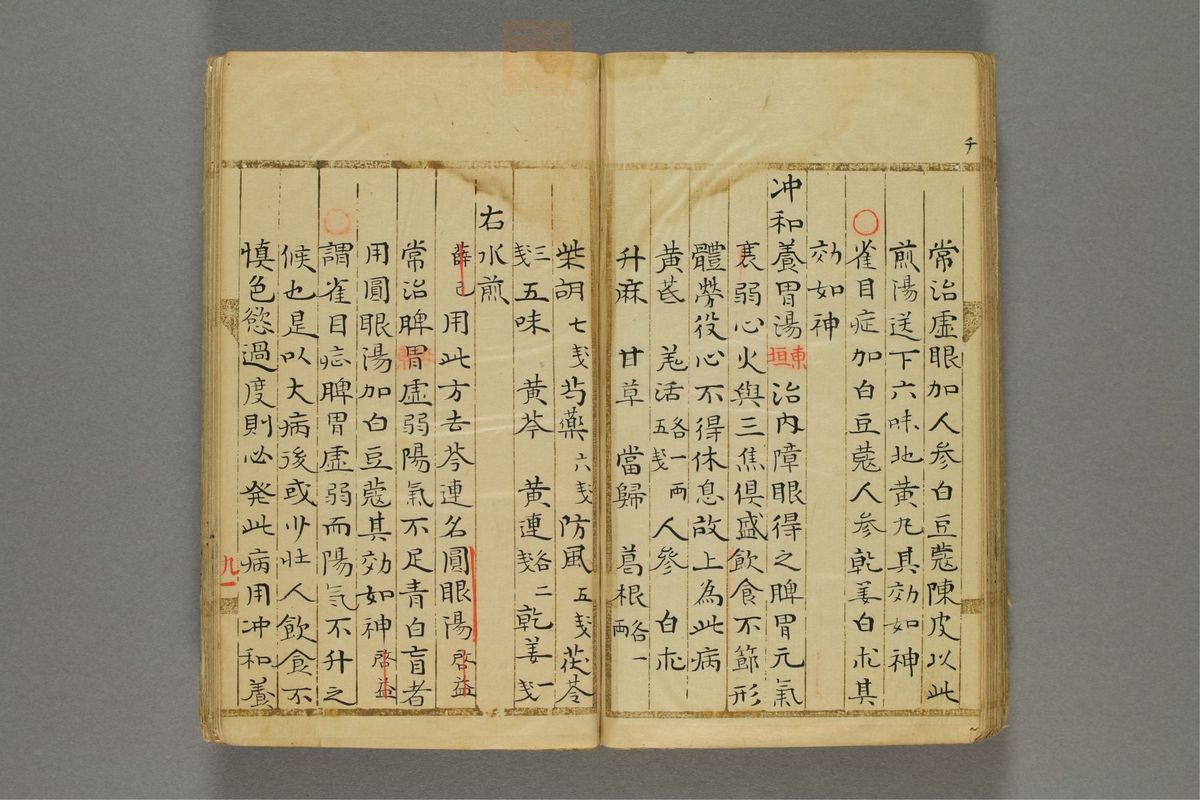 常治虚眼加人参白豆蔻陳皮以此
煎湯送下六味地黄丸其効如神
○雀目症加白豆蔻人参乾姜白朮其
効如神
冲和養胃湯東垣治内障眼得之脾胃元氣
衰弱心火與三焦俱盛飲食不節形
體勞役心不得休息故上為此病
黄芪 羌活各一両五戔 人參 白朮
升麻 甘草 當歸 葛根各一両
柴胡七戔 芍薬六戔 防風五戔 茯苓
三戔 五味 黄芩 黄連各二戔 乾姜一戔
右水煎
薛己用此方去芩連名圓眼湯啓益
常治脾胃虚弱陽氣不足青白盲者
用圓眼湯加白豆蔻其効如神啓益
○謂雀目症脾胃虚弱而陽気不升之
候也是以大病後或少壮人飲食不
慎色慾過度則必発此病用冲和養
九一